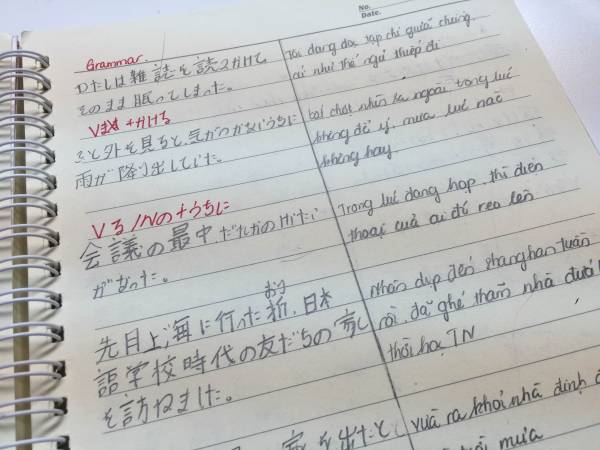 No.
Date.
Grammar.
わたしは雑誌を読みかけて
そのまま眠ってしまった。
Vます+かける
ふと外を見ると、気がつかないうちに
雨が降り出していた。
Vる/Nの+うちに
会議の最中、だれかのけいたい
がなった。
おり
先月上海に行った折、日本
語学校時代の友だちの家
を訪ねました。
家を出たと
Tôi đang đọc tạp chí giữa chừng
cái như thế ngủ thiếp đi
bất chợt nhìn ra ngoài trong lúc
không để ý, mưa lúc nào
không hay
Trong lúc đang họp, thì điện
thoại của ai đó reo lên
Nhân dịp đến shanghan tuần
rồi, đã ghé thăm nhà đứa
thời học TN
vừa ra khỏi nhà định
mưa